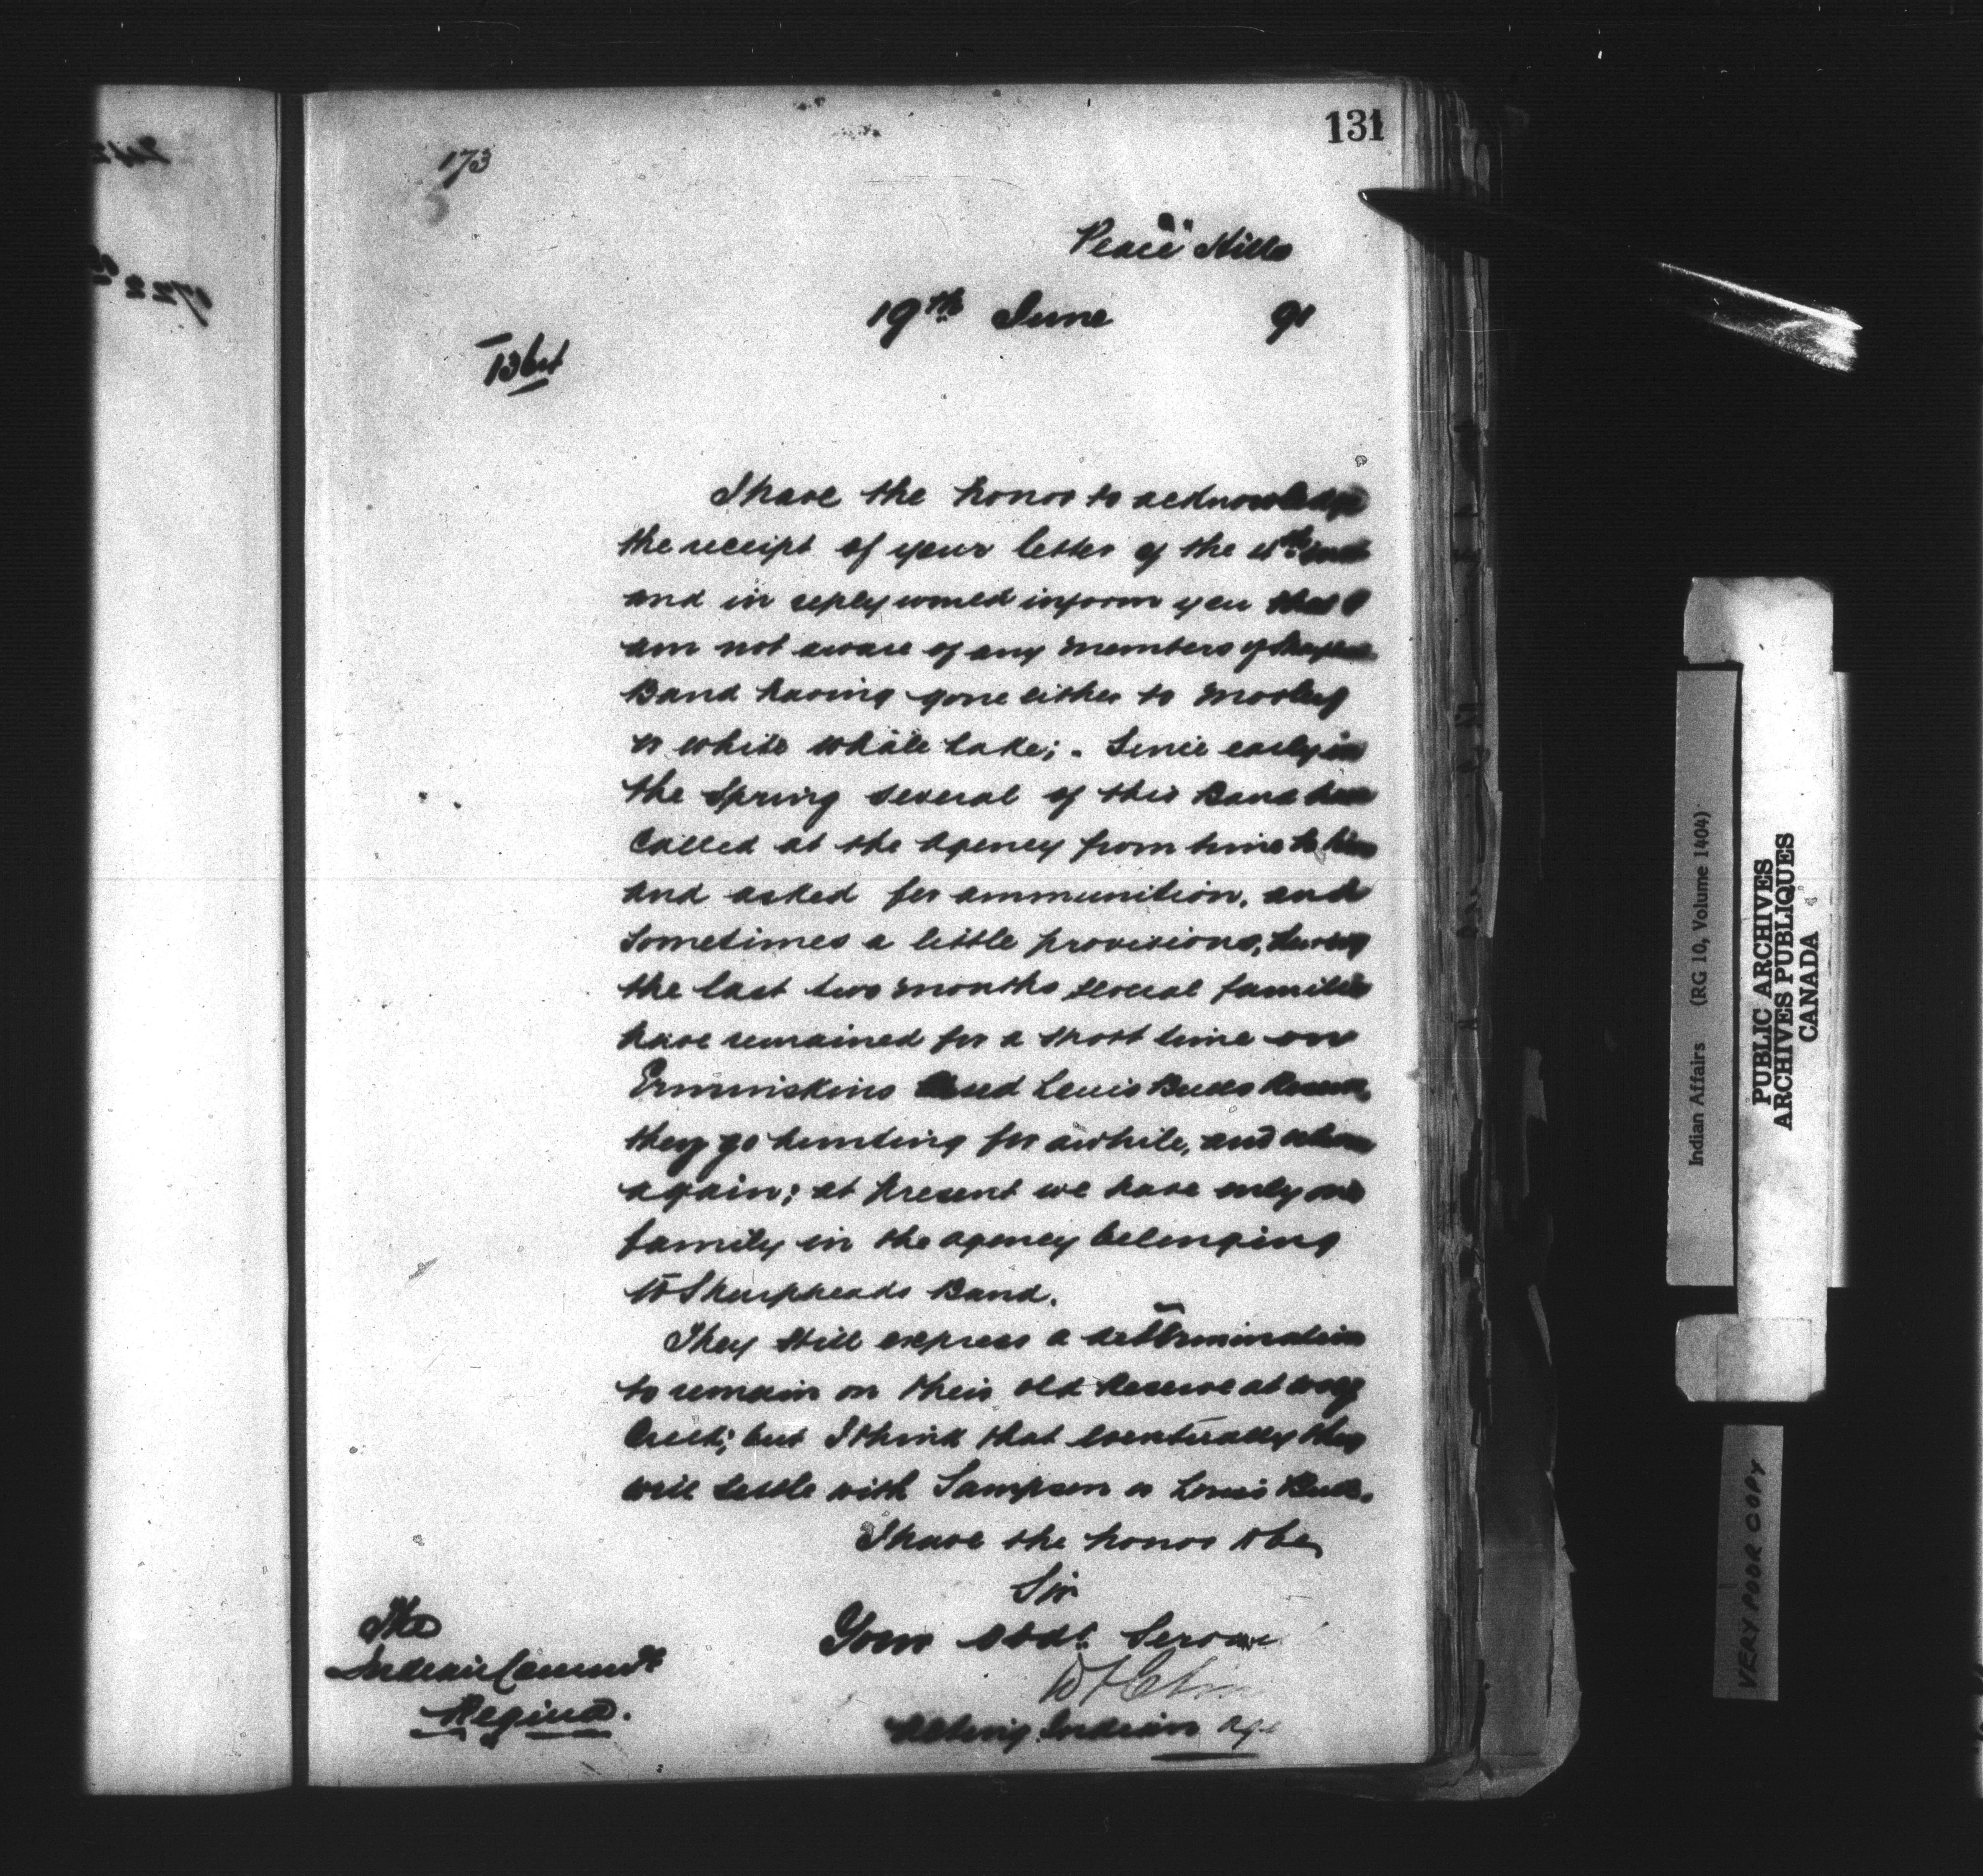 131
173
Peace Hills
19th June 91
I have the honor to acknowledge
the receipt of your letter of the
and in reply would inform you that I
am not aware of any members of
Band having gone either to Morley
or White Whale Lake; . Since early in
the Spring several of this Band have
Called at the Agency from time to time
and asked for ammunition, and
sometimes a little provisions, during
the last two months several families
have remained for a short time on
Ermineskins and Louis Bulls Reserve,
they go hunting for awhile, and return
again; at present we have only one
family in the agency belonging
to Sharpheads Band.
They still express a determination
to remain on their old Reserve at Wolf
Creek; but I think that eventually they
will settle with Sampson or Louis Bull.
I have the honor to be,
Sir
Your Obdt. Servan
Acting Indian Age
The
Indian Commr
Regina.
Indian Affairs (RG 10, Volume 1404)
PUBLIC ARCHIVES
ARCHIVES PUBLIQUES
CANADA
VERY POOR COPY